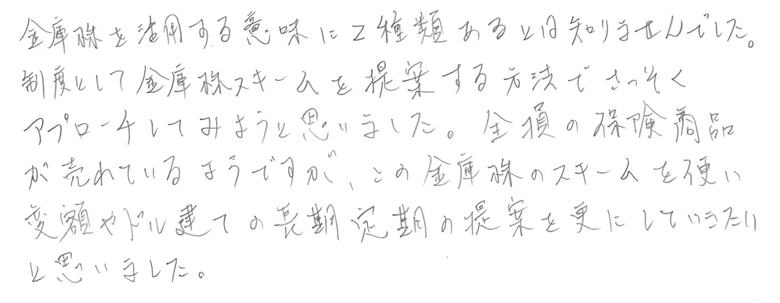 金庫株を活用する意味に2種類あるとは知りませんでした。
制度として金庫株スキームを提案する方法でさっそく
アプローチしてみようと思いました。全損の保険商品
が売れているようですが、この金庫株のスキームを使い
変額やドル建ての長期定期の提案を更にしていきたい
と思いました。